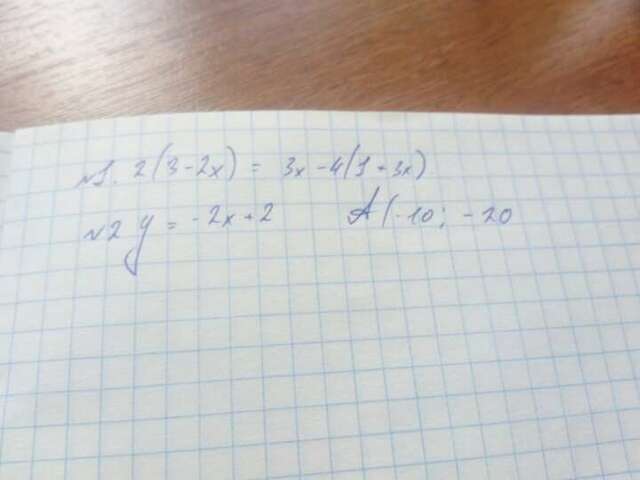 №1. 2(3-2x) = 3x-4(1+3x)
№2 y = -2x+2 A(-10; -20